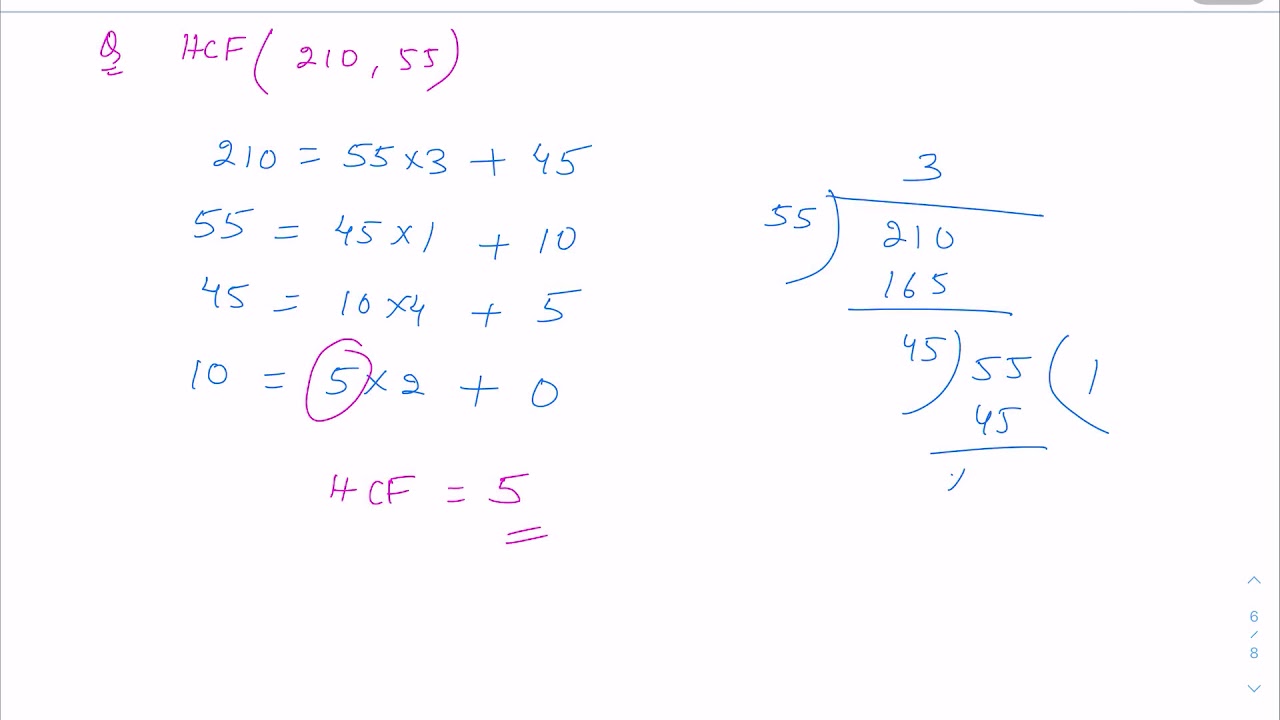 Q HCF ( 210 , 55 )
210 = 55 × 3 + 45
55 = 45 × 1 + 10
45 = 10 × 4 + 5
10 = 5 × 2 + 0
HCF = 5
3
55 ) 210
165
45 ) 55 ( 1
45
6 / 8